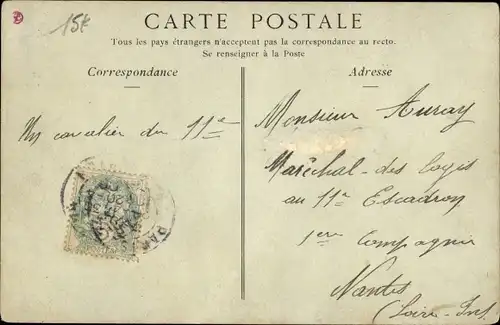 15€
CARTE POSTALE
Tous les pays étrangers n'acceptent pas la correspondance au recto.
Se renseigner à la Poste
Correspondance
Adresse
Un cavalier du 11e
Monsieur Auray
Maréchal-des logis
au 11e Escadron
1ere Compagnie
Nantes
(Loire-Inf.